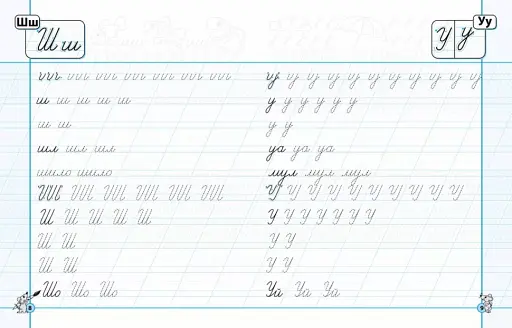 Шш
Ш ш
ш ш ш ш ш
ш ш
шл шл шл
шило шило
Ш Ш Ш Ш Ш
Ш Ш
Ш Ш
Шо Шо Шо
Уу
У у
у у у у у у
у у
уа уа уа
мул мул мул
У У У У У У У
У У
У У
Уа Уа Уа